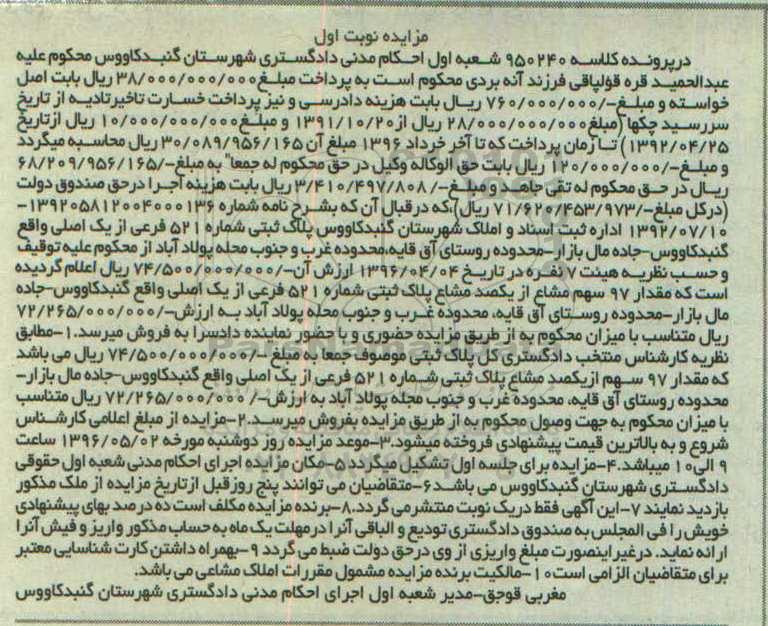 مزایده نوبت اول
درپرونده کلاسه ۹۵۰۲۴۰ شعبه اول احکام مدنی دادگستری شهرستان گنبدکاووس محکوم علیه
عبدالحمید قره قولپاقی فرزند آنه بردی محکوم است به پرداخت مبلغ۳۸/۰۰۰/۰۰۰/۰۰۰ ریال بابت اصل
خواسته و مبلغ-/۷۶۰/۰۰۰/۰۰۰ ریال بابت هزینه دادرسی و نیز پرداخت خسارت تاخیرتادیه از تاریخ
سررسید چکها (مبلغ۲۸/۰۰۰/۰۰۰/۰۰۰ ریال از۱۳۹۱/۱۰/۲۰ و مبلغ۱۰/۰۰۰/۰۰۰/۰۰۰ ریال ازتاریخ
۱۳۹۲/۰۴/۲۵) تا زمان پرداخت که تا آخر خرداد ۱۳۹۶ مبلغ آن ۳۰/۰۸۹/۹۵۶/۱۶۵ ریال محاسبه میگردد
و مبلغ-/۱۲۰/۰۰۰/۰۰۰ ریال بابت حق الوکاله وکیل در حق محکوم له جمعا" به مبلغ-/۶۸/۲۰۹/۹۵۶/۱۶۵
ریال در حق محکوم له تقی جاهد و مبلغ-/۳/۴۱۰/۴۹۷/۸۰۸ ریال بابت هزینه اجرا درحق صندوق دولت
(درکل مبلغ-/۷۱/۶۲۰/۴۵۳/۹۷۳ ریال)،که درقبال آن که بشرح نامه شماره ۱۳۹۲۰۵۸۱۲۰۰۴۰۰۰۱۳۶-
۱۳۹۲/۰۷/۱۰ اداره ثبت اسناد و املاک شهرستان گنبدکاووس پلاک ثبتی شماره ۵۲۱ فرعی از یک اصلی واقع
گنبدکاووس-جاده مال بازار-محدوده روستای آق قایه،محدوده غرب و جنوب محله پولاد آباد از محکوم علیه توقیف
و حسب نظریه هیئت ۷ نفره در تاریخ ۱۳۹۶/۰۴/۰۴ ارزش آن-/۷۴/۵۰۰/۰۰۰/۰۰۰ ریال اعلام گردیده
است که مقدار ۹۷ سهم مشاع از یکصد مشاع پلاک ثبتی شماره ۵۲۱ فرعی از یک اصلی واقع گنبدکاووس-جاده
مال بازار-محدوده روستای آق قایه، محدوده غرب و جنوب محله پولاد آباد به ارزش-/۷۲/۲۶۵/۰۰۰/۰۰۰
ریال متناسب با میزان محکوم به از طریق مزایده حضوری و با حضور نماینده دادسرا به فروش میرسد.۱-مطابق
نظریه کارشناس منتخب دادگستری کل پلاک ثبتی موصوف جمعا به مبلغ -/۷۴/۵۰۰/۰۰۰/۰۰۰ ریال می باشد
که مقدار ۹۷ سهم ازیکصد مشاع پلاک ثبتی شماره ۵۲۱ فرعی از یک اصلی واقع گنبدکاووس-جاده مال بازار-
محدوده روستای آق قایه، محدوده غرب و جنوب محله پولاد آباد به ارزش-/۷۲/۲۶۵/۰۰۰/۰۰۰ ریال متناسب
با میزان محکوم به جهت وصول محکوم به از طریق مزایده بفروش میرسد.۲-مزایده از مبلغ اعلامی کارشناس
شروع و به بالاترین قیمت پیشنهادی فروخته میشود.۳-موعد مزایده روز دوشنبه مورخه ۱۳۹۶/۰۵/۰۲ ساعت
۹ الی۱۰ میباشد.۴-مزایده برای جلسه اول تشکیل میگردد ۵-مکان مزایده اجرای احکام مدنی شعبه اول حقوقی
دادگستری شهرستان گنبدکاووس می باشد ۶-متقاضیان می توانند پنج روزقبل ازتاریخ مزایده از ملک مذکور
بازدید نمایند ۷-این آگهی فقط دریک نوبت منتشر می گردد.۸-برنده مزایده مکلف است ده درصد بهای پیشنهادی
خویش را فی المجلس به صندوق دادگستری تودیع و الباقی آنرا درمهلت یک ماه به حساب مذکور واریز و فیش آنرا
ارائه نماید. درغیر اینصورت مبلغ واریزی از وی درحق دولت ضبط می گردد ۹-بهمراه داشتن کارت شناسایی معتبر
برای متقاضیان الزامی است ۱۰-مالکیت برنده مزایده مشمول مقررات املاک مشاعی می باشد.
مغربی قوجق-مدیر شعبه اول اجرای احکام مدنی دادگستری شهرستان گنبدکاووس